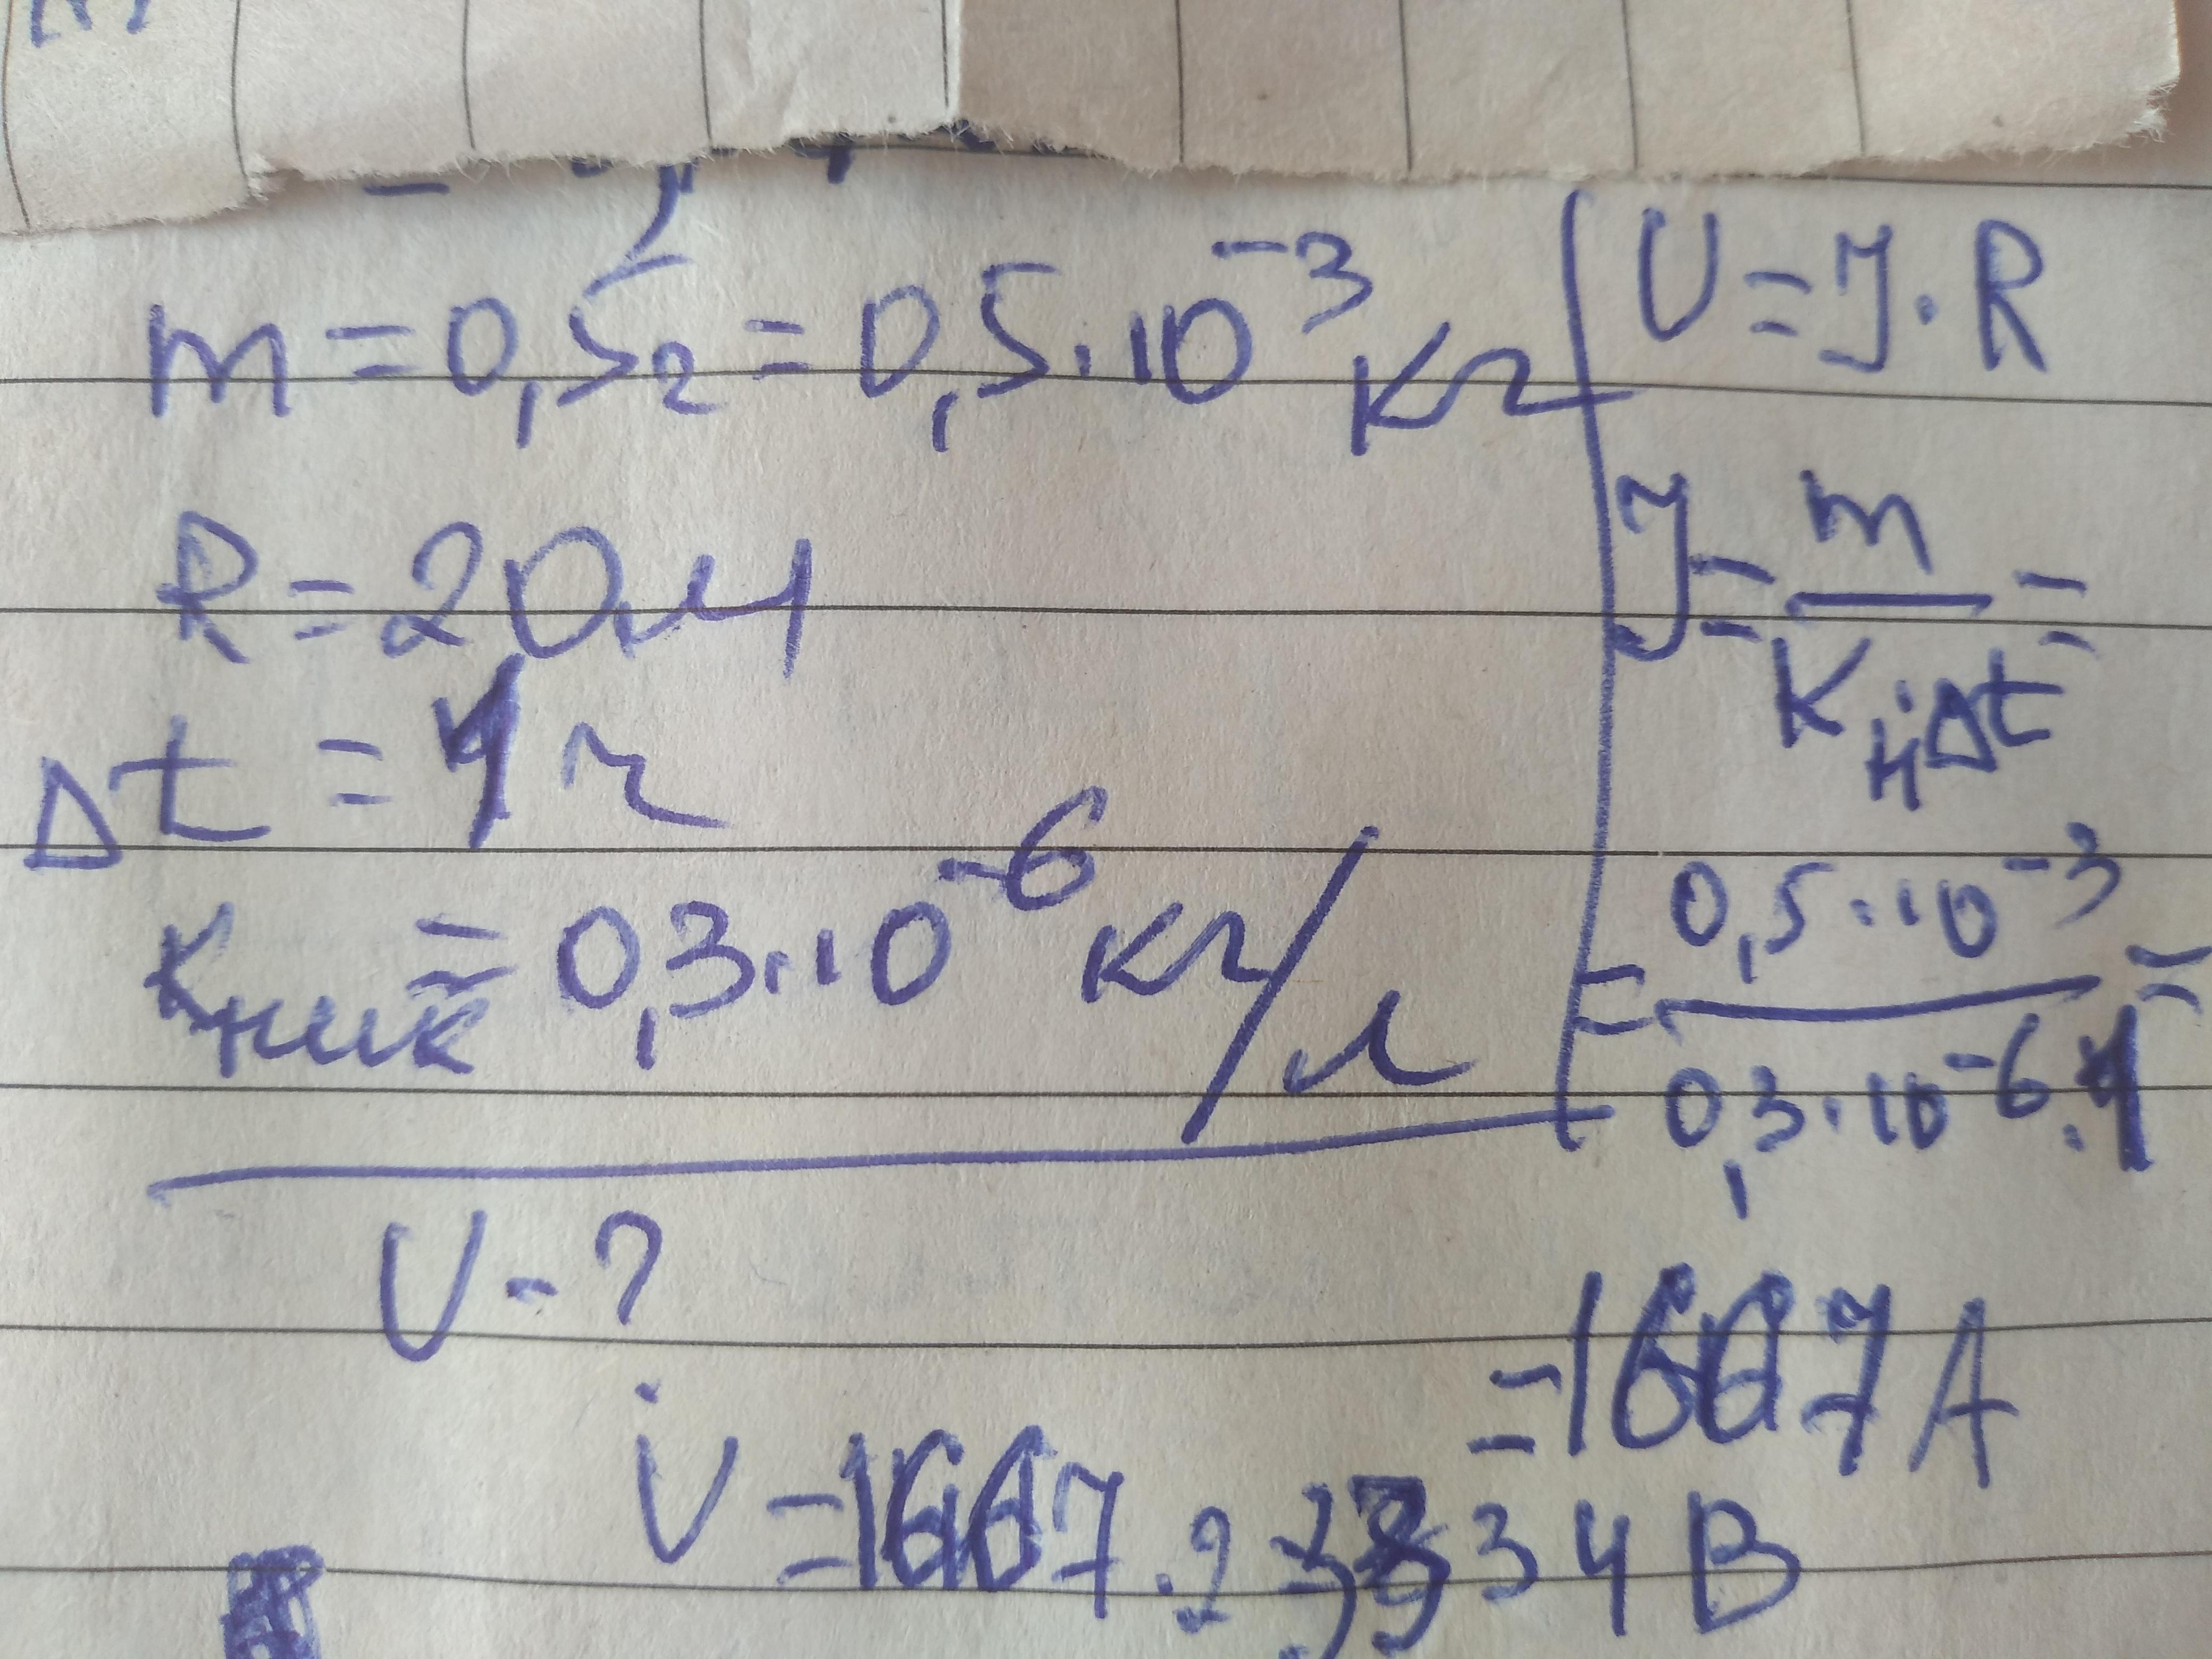 m = 0,5г = 0,5·10⁻³ кг
R = 2 Ом
Δt = 1 г
Kник = 0,3·10⁻⁶ кг/л
U - ?
U = J · R
J = m / Kн·Δt =
= 0,5·10⁻³ / 0,3·10⁻⁶·1 =
= 1667 A
U = 1667 · 2 = 3334 В